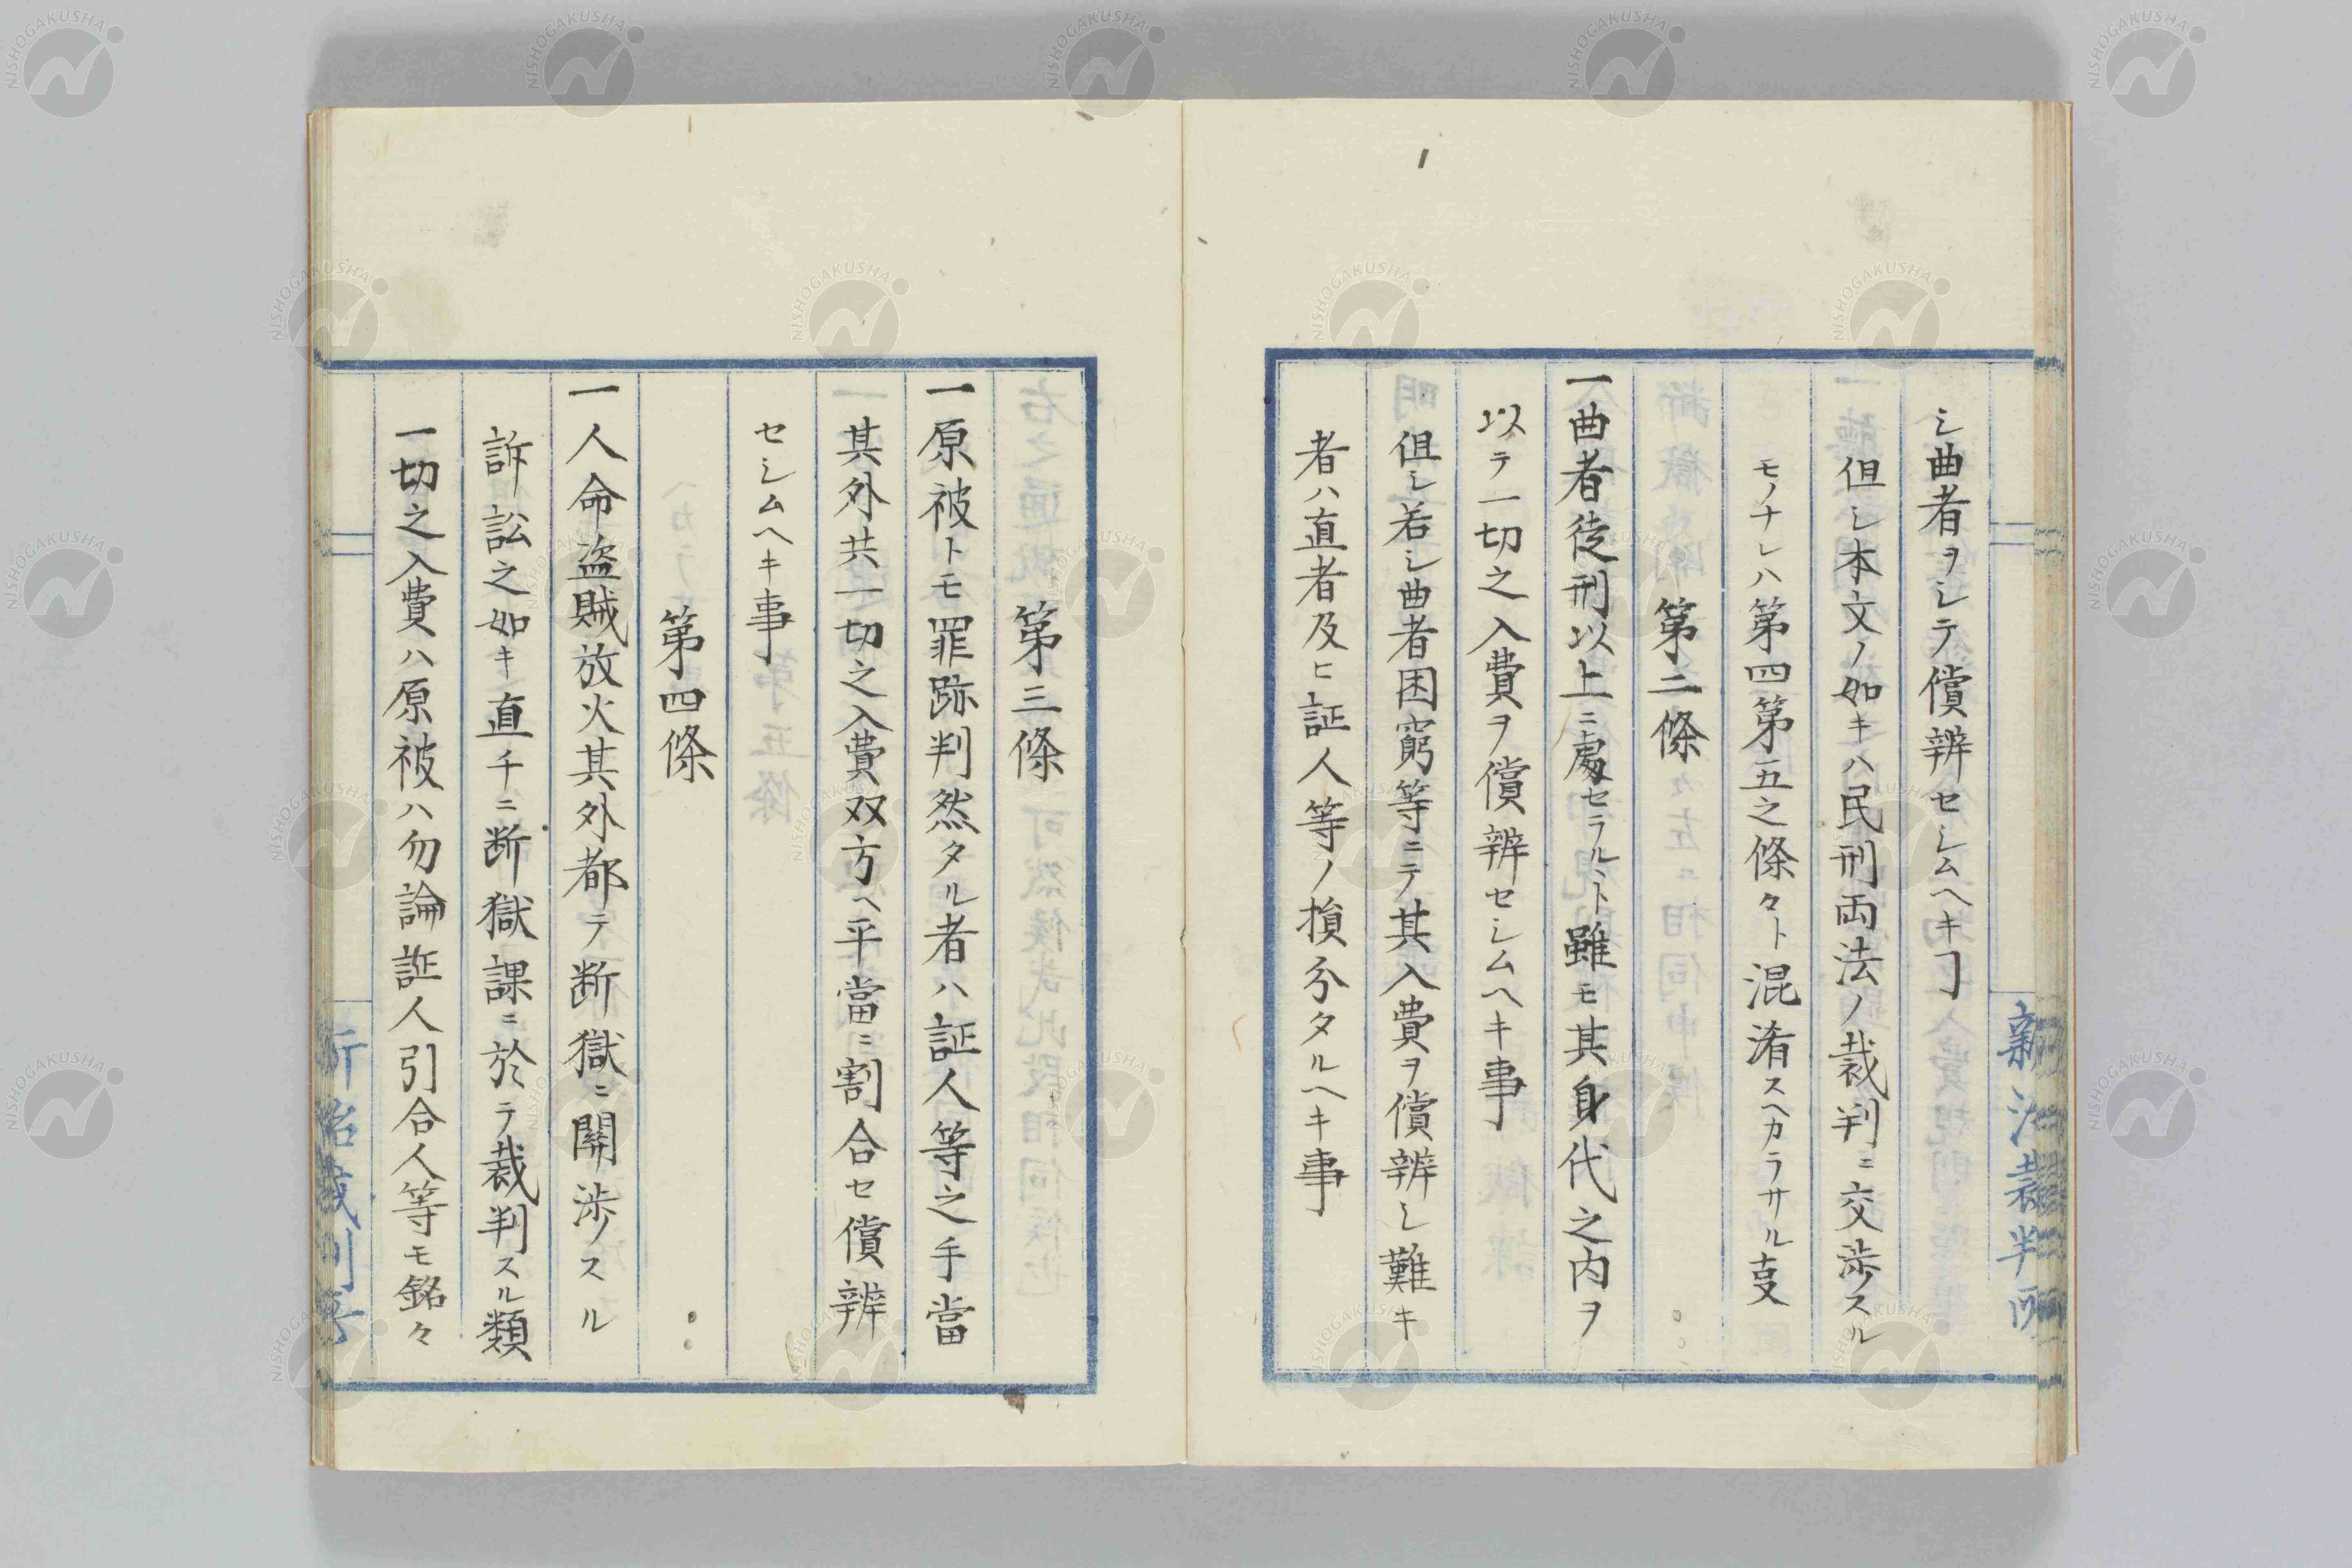 シ曲者ヲシテ償辨セシムヘキヿ
但シ本文ノ如キハ民刑両法ノ裁判ニ交渉スル
モノナレハ第四第五之條々ト混淆スヘカラサル㕝
第二條
一曲者徒刑以上ニ處セラルヽト雖モ其身代之内ヲ
以テ一切之入費ヲ償辨セシムヘキ事
但シ若シ曲者困窮等ニテ其入費ヲ償辨シ難キ
者ハ直者及ヒ証人等ノ損分タルヘキ事
第三條
一原被トモ罪跡判然タル者ハ証人等之手當
其外共一切之入費双方ヘ平當ニ割合セ償辨
セシムヘキ事
第四條
一人命盗賊放火其外都テ断獄ニ關渉スル
訴訟之如キ直チニ断獄課ニ於テ裁判スル類
一切之入費ハ原被ハ勿論証人引合人等モ銘々
新治裁判所
NISHOGAKUSHA